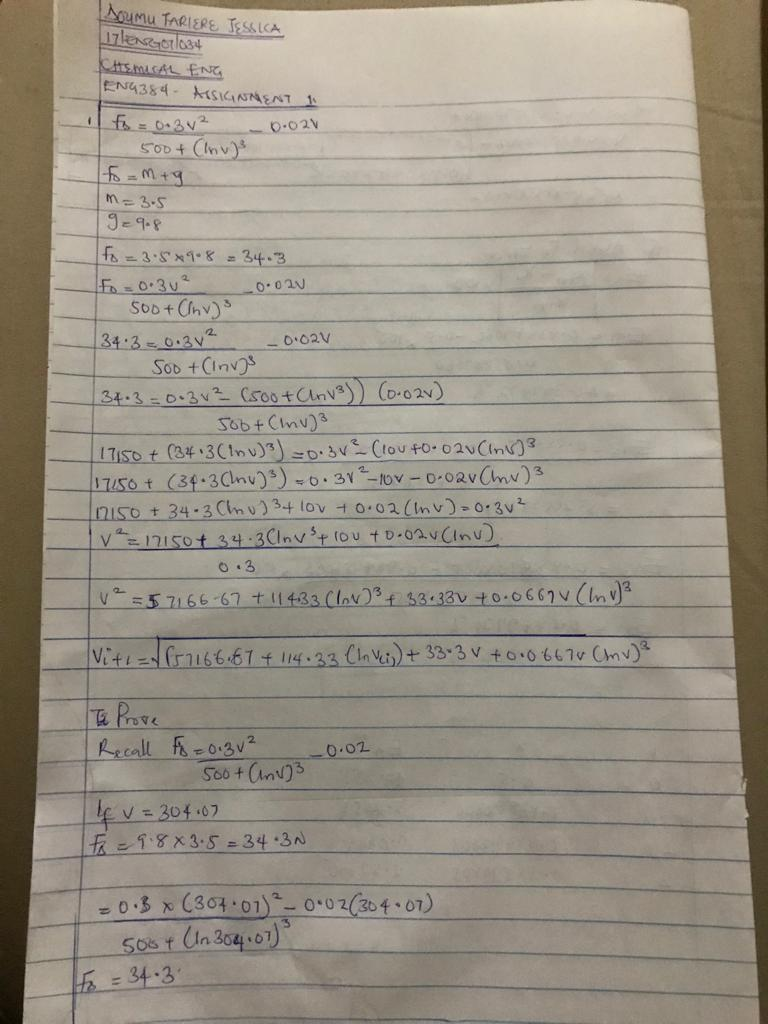 AOUMU TARIERE JESSICA
17/ENG01/034
CHEMICAL ENG
ENG384 - ASSIGNMENT 1.
1 FD = 0.3v² - 0.02v
500 + (lnv)³
FD = m+g
m = 3.5
g = 9.8
FD = 3.5 x 9.8 = 34.3
FD = 0.3v² - 0.02v
500 + (lnv)³
34.3 = 0.3v² - 0.02v
500 + (lnv)³
34.3 = 0.3v² - (500 + (lnv³)) (0.02v)
500 + (lnv)³
17150 + (34.3(lnv)³) = 0.3v² - (10v + 0.02v(lnv)³
17150 + (34.3(lnv)³) = 0.3v² - 10v - 0.02v(lnv)³
17150 + 34.3(lnv)³ + 10v + 0.02(lnv) = 0.3v²
v² = 17150 + 34.3(lnv³ + 10v + 0.02v(lnv)
0.3
v² = 57166.67 + 114.33(lnv)³ + 33.33v + 0.0667v(lnv)³
Vi+1 = √(57166.67 + 114.33(lnv(i)) + 33.3v + 0.0667v(lnv)³
To Prove
Recall FD = 0.3v² - 0.02
500 + (lnv)³
If v = 304.07
FD = 9.8 x 3.5 = 34.3N
= 0.3 x (304.07)² - 0.02(304.07)
500 + (ln304.07)³
FD = 34.3